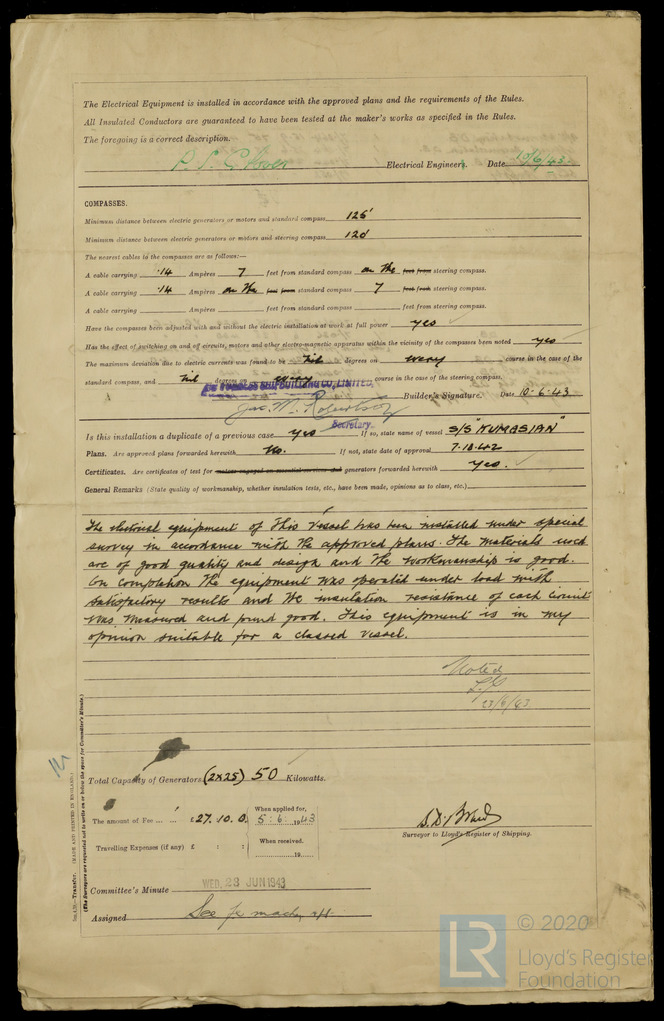 The Electrical Equipment is installed in accordance with the approved plans and the requirements of the Rules.
All Insulated Conductors are guaranteed to have been tested at the maker's works as specified in the Rules.
The foregoing is a correct description.
Electrical Engineers. Date 10/6/43.
COMPASSES.
Minimum distance between electric generators or motors and standard compass 126'
Minimum distance between electric generators or motors and steering compass 120'
The nearest cables to the compasses are as follows:—
A cable carrying .14 Ampères 7 feet from standard compass on the feet from steering compass.
A cable carrying .14 Ampères on the feet from standard compass 7 feet from steering compass.
A cable carrying Ampères feet from standard compass feet from steering compass.
Have the compasses been adjusted with and without the electric installation at work at full power yes
Has the effect of switching on and off circuits, motors and other electro-magnetic apparatus within the vicinity of the compasses been noted yes
The maximum deviation due to electric currents was found to be Nil degrees on every course in the case of the
standard compass, and nil degrees on every course in the case of the steering compass.
FURNESS SHIPBUILDING CO., LIMITED,
Jas. M. Robertson Builder's Signature. Date 10-6-43
Secretary.
Is this installation a duplicate of a previous case yes If so, state name of vessel S/S "KUMASIAN"
Plans. Are approved plans forwarded herewith No. If not, state date of approval 7.10.42
Certificates. Are certificates of test for motors engaged on essential services and generators forwarded herewith Yes.
General Remarks (State quality of workmanship, whether insulation tests, etc., have been made, opinions as to class, etc.)
The electrical equipment of this vessel has been installed under special
survey in accordance with the approved plans. The materials used
are of good quality and design and the workmanship is good.
On completion the equipment was operated under load with
satisfactory results and the insulation resistance of each circuit
was measured and found good. This equipment is in my
opinion suitable for a classed vessel.
Noted
23/6/43
Total Capacity of Generators (2x25) 50 Kilowatts.
The amount of Fee ... ... £27.10.0
When applied for, 5.6.1943
Travelling Expenses (if any) £ : :
When received. 19
Surveyor to Lloyd's Register of Shipping.
Committee's Minute WED. 23 JUN 1943
Assigned See
Transfer. (MADE AND PRINTED IN ENGLAND.)
(The Surveyors are requested not to write on or below the space for Committee's Minute.)
LR
© 2020
Lloyd's Register
Foundation